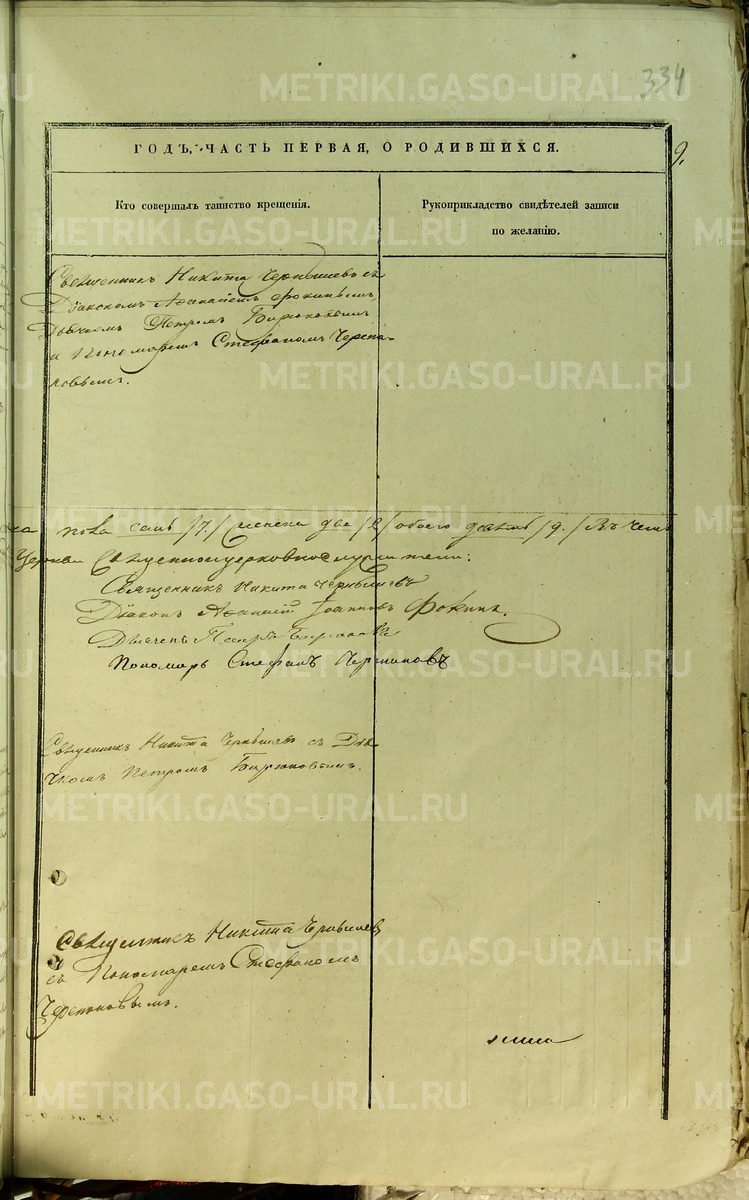 334
ГОДЪ, ЧАСТЬ ПЕРВАЯ, О РОДИВШИХСЯ.
9.
Кто совершалъ таинство крещенія.
Рукоприкладство свидѣтелей записи
по желанію.
Священникъ Никита Чернышевъ съ
Діакономъ Афанасіемъ Фокинымъ,
Дьячкомъ Петромъ Бирюковымъ
и Пономаремъ Стефаномъ Черепа-
новымъ.
пола семь /7./ женска два /2/ обоего девять /9./ Въ чемъ
Церкви Священноцерковнослужители:
Священникъ Никита Чернышевъ
Діаконъ Афанасій Іоанновъ Фокинъ.
Дьячекъ Петръ Бирюковъ
Пономарь Стефанъ Черепановъ
Священникъ Никита Чернышевъ съ Дья-
чкомъ Петромъ Бирюковымъ.
Священникъ Никита Чернышевъ
съ Пономаремъ Стефаномъ
Черепановымъ.
METRIKI.GASO-URAL.RU